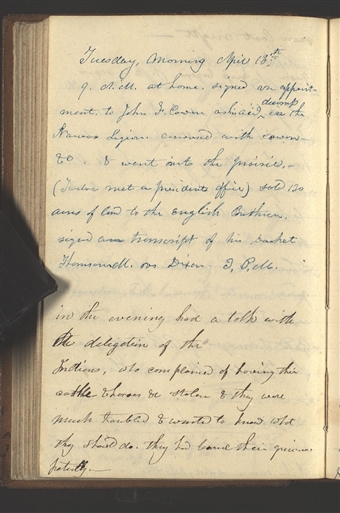 Tuesday, Morning April 18th
9. A.M. at home. signed an appoint-
ment. to John F. Cowan as aid, de camp in the
Nauvoo Legion conversed with Cowan
&c. & went onto the prairie.
( met a presidents office) sold 130
acres of land to the English Brethren.
signed a transcript of his Docket
Thompson M. vs Dixon J, P. M.
in the evening had a talk with
delegation of the
Indians, who complained of having their
cattle & horses &c stolen & they were
much troubled & wanted to know what
they should do. they had borne their grievances
patiently.—